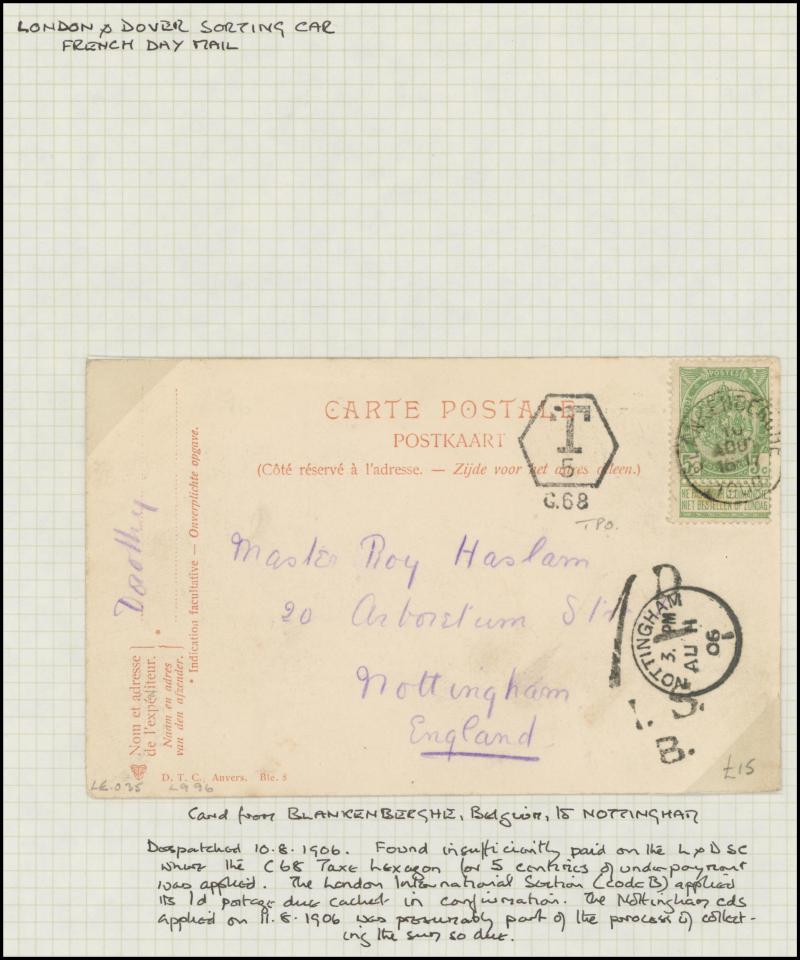 LONDON & DOVER SORTING CAR
FRENCH DAY MAIL
CARTE POSTALE
POSTKAART
(Côté réservé à l'adresse. — Zijde voor het adres alleen.)
T
5
C.68
TPO.
POSTES
BLANKENBERGHE
10
AOU
1906
NIET BESTELLEN OP ZONDAG
Dorothy
Nom et adresse
de l'expéditeur.
Naam en adres
van den afzender.
* Indication facultative — Onverplichte opgave.
*
Master Roy Haslam
20 Arboretum Str
Nottingham
England
1D
NOTTINGHAM
3. PM
AU 11
06
I.S.
B.
D. T. C., Anvers. Ble. 8
LE.035 L996
£15
Card from BLANKENBERGHE, Belgium, to NOTTINGHAM
Despatched 10.8.1906. Found insufficiently paid on the L&DSC
where the C68 Taxe hexagon for 5 centimes of underpayment
was applied. The London International Section (code B) applied
its 1d postage due cachet in confirmation. The Nottingham cds
applied on 11.8.1906 was presumably part of the process of collect-
ing the sum so due.